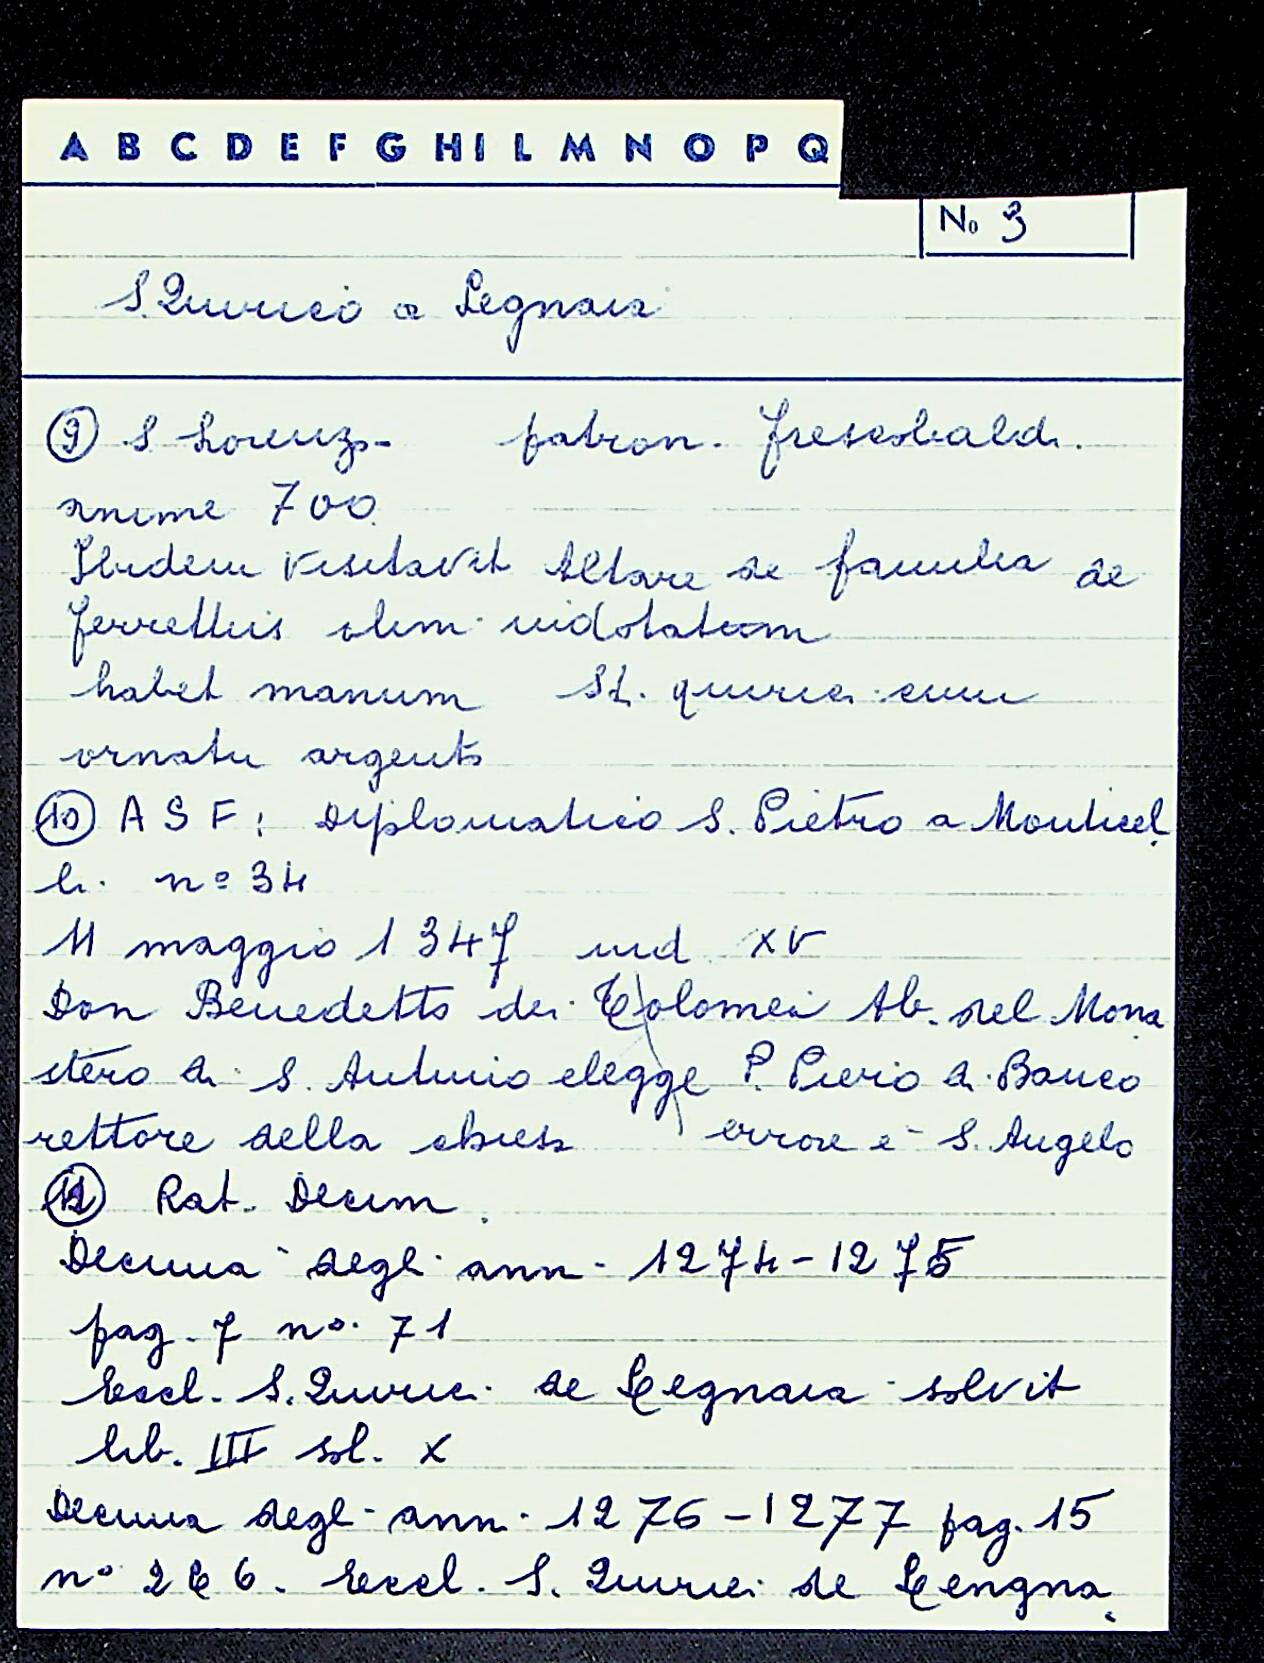 A B C D E F G H I L M N O P Q
No 3
S. Quirico a Legnaia
⑨ S Lorenzo - patron. Frescobaldi.
anime 700
Ibidem visitavit Altare de familia de
Ferrettis olim indotatum
habet manum St. quirici cum
ornatu argento
⑩ A S F: Diplomatico S. Pietro a Monticel
li. nº 34
11 maggio 1347 ind XV
Don Benedetto dei Tolomei Ab. del Mona
stero di S. Antonio elegge P. Piero di Banco
rettore della chiesa errore è S. Angelo
Rat. Decim.
Decima degli anni 1274-1275
pag. 7 nº. 71
Eccl. S. Quirici de Legnaia solvit
lib. III sol. X
Decima degli anni. 1276-1277 pag. 15
Eccl. S. Quirici de Lengna